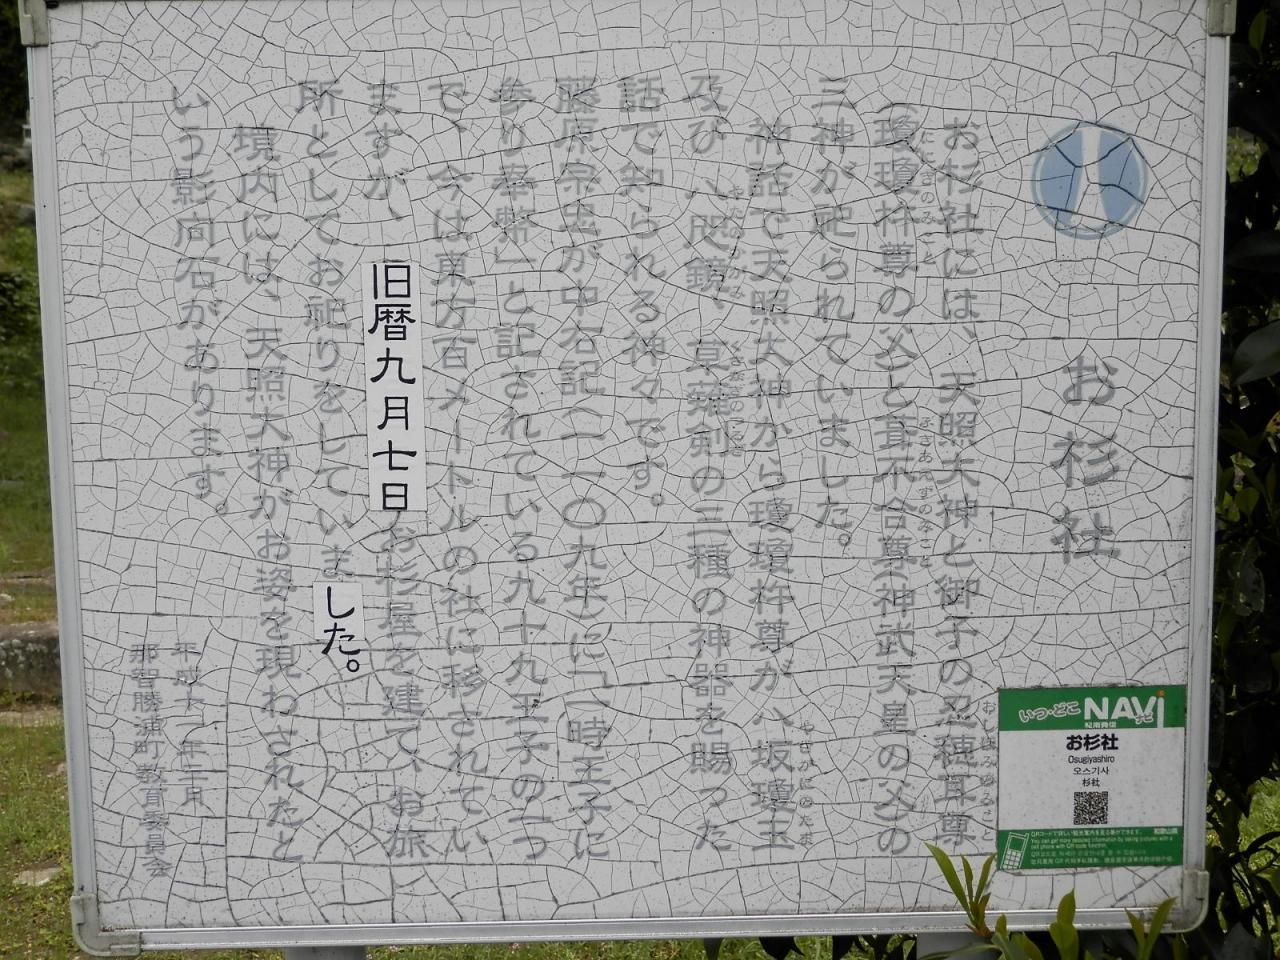 お杉社
お杉社には、天照大神と御子の忍穂耳尊
おしほみみのみこと
(瓊瓊杵尊の父)と葺不合尊(神武天皇の父)の
ににぎのみこと
ふきあへずのみこと
三神が祀られていました。
神話で天照大神から瓊瓊杵尊が八坂瓊玉
やさかにのたま
及び、八咫鏡、草薙剣の三種の神器を賜った
やたのかがみ
くさなぎのつるぎ
話で知られる神々です。
藤原宗忠が中右記(一一〇九年)に「一時王子に
参り奉幣」と記されている九十九王子の一つ
で、今は東方百メートルの社に移されてい
ますが、旧暦九月七日、お杉屋を建て、お旅
所としてお祀りをしていました。
境内には、天照大神がお姿を現わされたと
いう影向石があります。
平成十 年三月
那智勝浦町教育委員会
いつ・どこ NAVi
ナビ
紀南発信
お杉社
Osugiyashiro
오스기샤
杉社
和歌山県